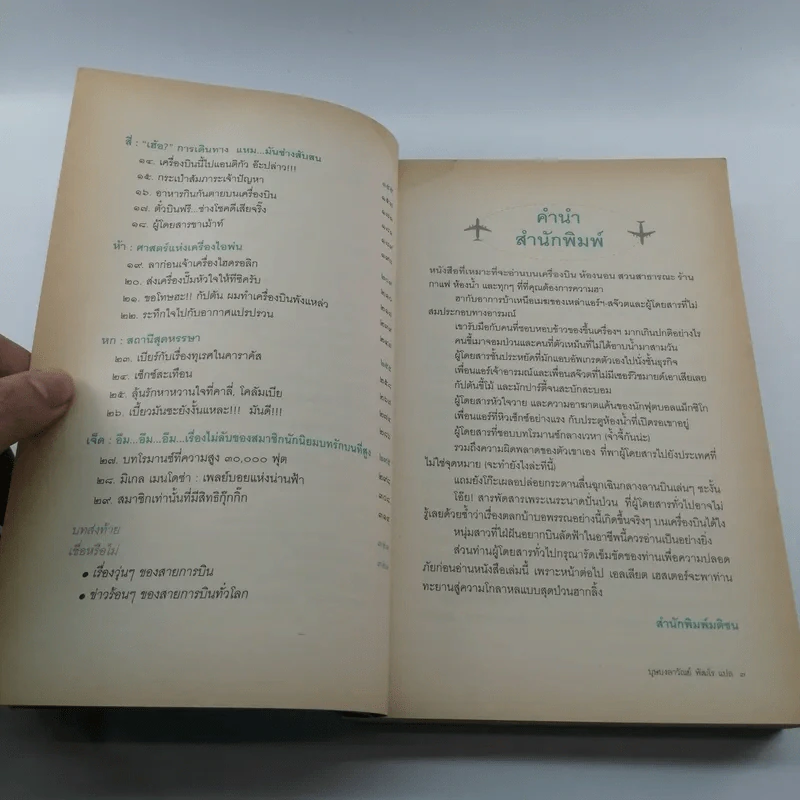 สี่ : "เฮ้อ?" การเดินทาง แหม...มันช่างสับสน
๑๔. เครื่องบินนี้ไปแอนติกัว อ๊ะปล่าว!!!
๑๕. กระเป๋าสัมภาระเจ้าปัญหา
๑๖. อาหารกินกันตายบนเครื่องบิน
๑๗. ตั๋วบินฟรี...ช่างโชคดีเสียจริ๊ง
๑๘. ผู้โดยสารขาเม้าท์
ห้า : ศาสตร์แห่งเครื่องไอพ่น
๑๙. ลาก่อนเจ้าเครื่องไฮดรอลิก
๒๐. ส่งเครื่องปั๊มหัวใจให้ทีซิครับ
๒๑. ขอโทษฮะ!! กัปตัน ผมทำเครื่องบินพังแหล่ว
๒๒. ระทึกใจไปกับอากาศแปรปรวน
หก : สถานีสุดหรรษา
๒๓. เบียร์กับเรื่องทุเรศในคาราคัส
๒๔. เซ็กซ์สะเทือน
๒๕. ลุ้นรักหวานใจที่คาลี่, โคลัมเบีย
๒๖. เบี้ยวมันซะยังงั้นแหละ!!! มันดี!!!
เจ็ด : อึม...อึม...อึม...เรื่องไม่ลับของสมาชิกนักนิยมบทรักบนที่สูง
๒๗. บทโรมานซ์ที่ความสูง ๓๐,๐๐๐ ฟุต
๒๘. มิเกล เมนโดซ่า : เพลย์บอยแห่งน่านฟ้า
๒๙. สมาชิกเท่านั้นที่มีสิทธิกุ๊กกิ๊ก
บทส่งท้าย
เชื่อหรือไม่
• เรื่องวุ่นๆ ของสายการบิน
• ข่าวร้อนๆ ของสายการบินทั่วโลก
คำนำ
สำนักพิมพ์
หนังสือที่เหมาะที่จะอ่านบนเครื่องบิน ห้องนอน สวนสาธารณะ ร้าน
กาแฟ ห้องน้ำ และทุกๆ ที่ที่คุณต้องการความฮา
ฮากับอาการบ้าเหนือเมฆของเหล่าแอร์ฯ-สจ๊วตและผู้โดยสารที่ไม่
สมประกอบทางอารมณ์
เขารับมือกับคนที่ชอบหอบข้าวของขึ้นเครื่องฯ มากเกินปกติอย่างไร
คนขี้เมาจอมป่วนและคนที่ตัวเหม็นที่ไม่ได้อาบน้ำมาสามวัน
ผู้โดยสารชั้นประหยัดที่มักแอบอัพเกรดตัวเองไปนั่งชั้นธุรกิจ
เพื่อนแอร์เจ้าอารมณ์และเพื่อนสจ๊วตที่ไม่มีเซอร์วิซมายด์เอาเสียเลย
กัปตันขี้ไม้ และมักปาร์ตี้จนสะบักสะบอม
ผู้โดยสารหัวใจวาย และความอาฆาตแค้นของนักฟุตบอลแม็กซิโก
เพื่อนแอร์ที่หิวเซ็กซ์อย่างแรง กับประตูห้องน้ำที่เปิดรอเขาอยู่
ผู้โดยสารที่ชอบบทโรมานซ์กลางเวหา (จ้ำจี้กันน่ะ)
รวมถึงความผิดพลาดของตัวเขาเอง ที่พาผู้โดยสารไปยังประเทศที่
ไม่ใช่จุดหมาย (จะทำยังไงล่ะทีนี้)
แถมยังโก๊ะเผลอปล่อยกระดานลื่นฉุกเฉินกลางลานบินเล่นๆ ซะงั้น
โอ๊ย! สารพัดสารเพระเนระนาดปั่นป่วน ที่ผู้โดยสารทั่วไปอาจไม่
รู้เลยด้วยซ้ำว่าเรื่องตลกบ้าบอพรรณอย่างนี้เกิดขึ้นจริงๆ บนเครื่องบินได้ไง
หนุ่มสาวที่ใฝ่ฝันอยากบินลัดฟ้าในอาชีพนี้ควรอ่านเป็นอย่างยิ่ง
ส่วนท่านผู้โดยสารทั่วไปกรุณารัดเข็มขัดของท่านเพื่อความปลอด
ภัยก่อนอ่านหนังสือเล่มนี้ เพราะหน้าต่อไป เอลเลียต เฮสเตอร์จะพาท่าน
ทะยานสู่ความโกลาหลแบบสุดป่วนฮากลิ้ง
สำนักพิมพ์มติชน
แปล ๓